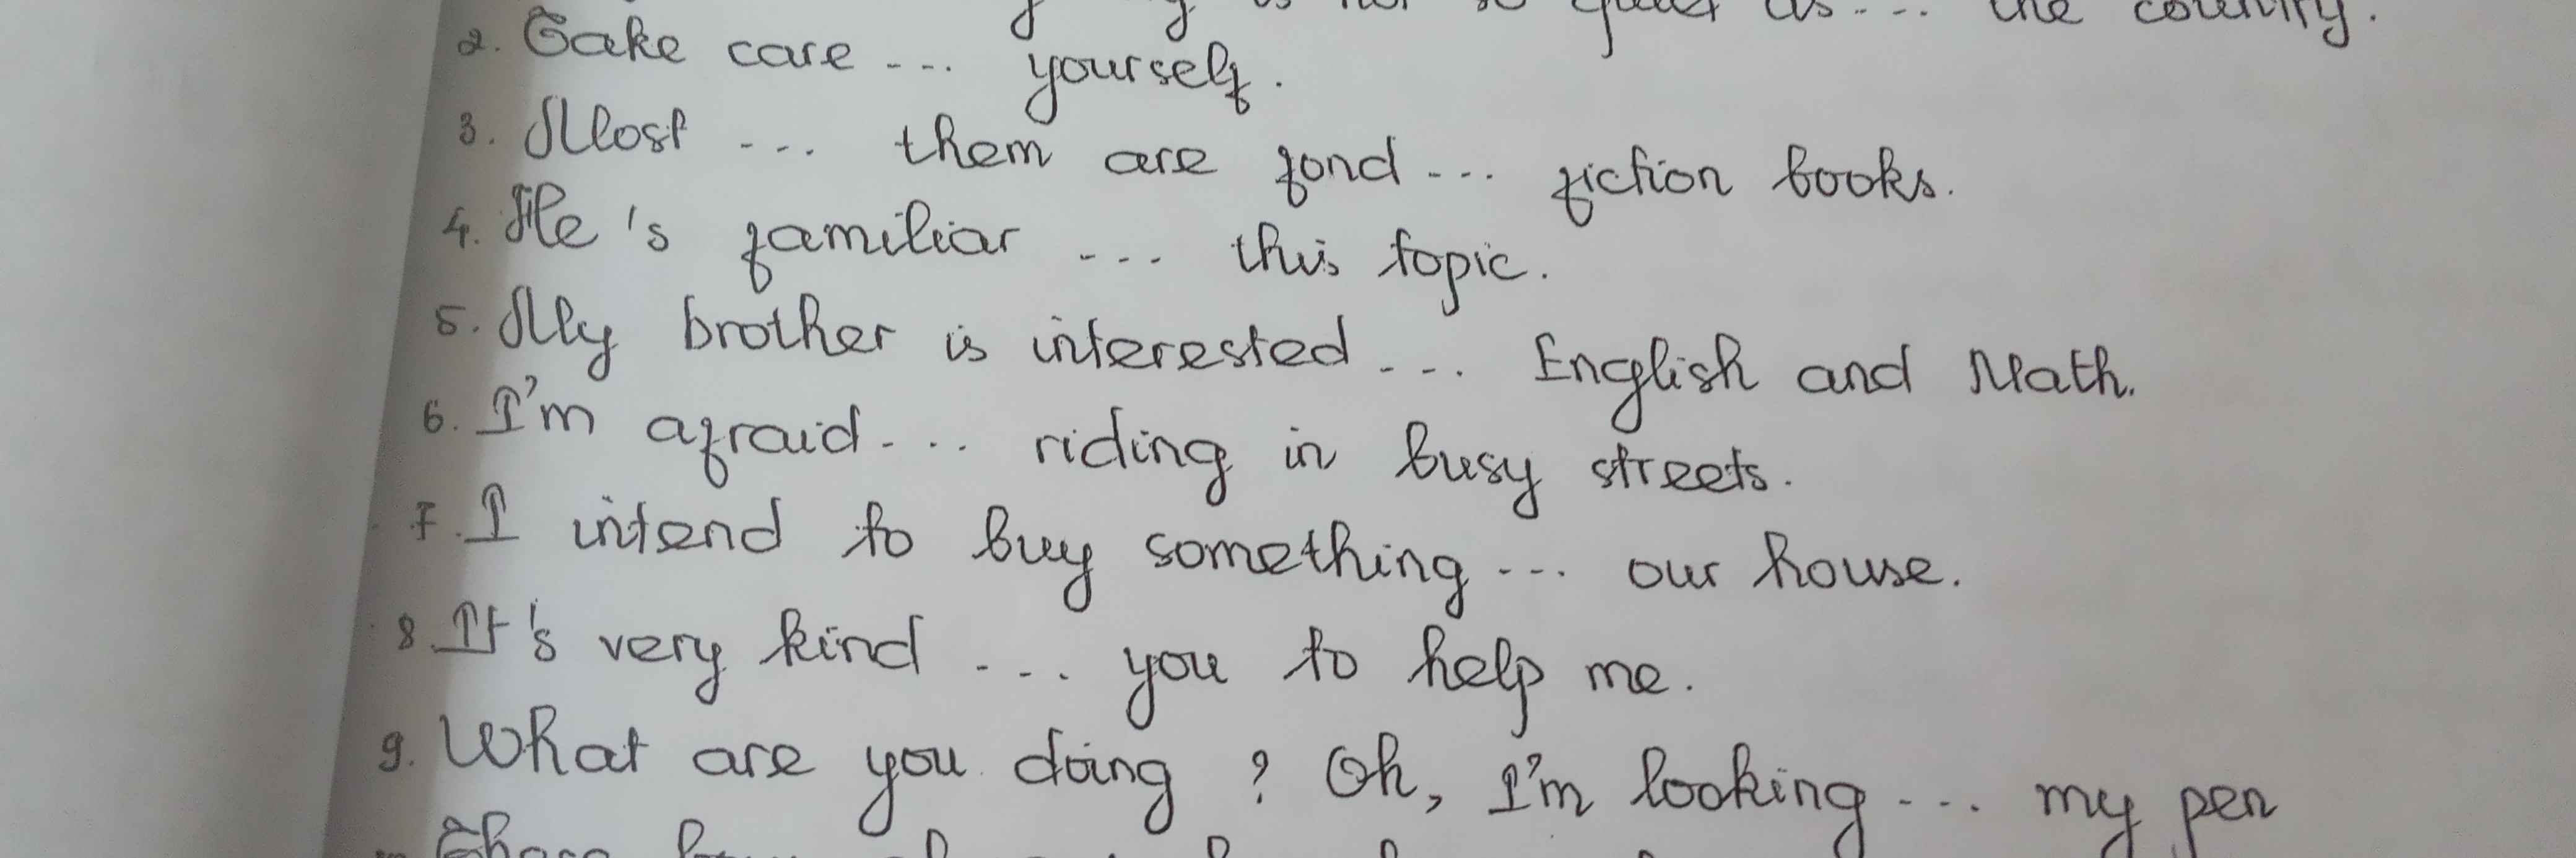 is not so quiet as... the country.
2. Take care ... yourself.
3. Most ... them are fond ... fiction books.
4. He's familiar ... this topic.
5. My brother is interested ... English and Math.
6. I'm afraid ... riding in busy streets.
7. I intend to buy something ... our house.
8. It's very kind ... you to help me.
9. What are you doing? Oh, I'm looking ... my pen